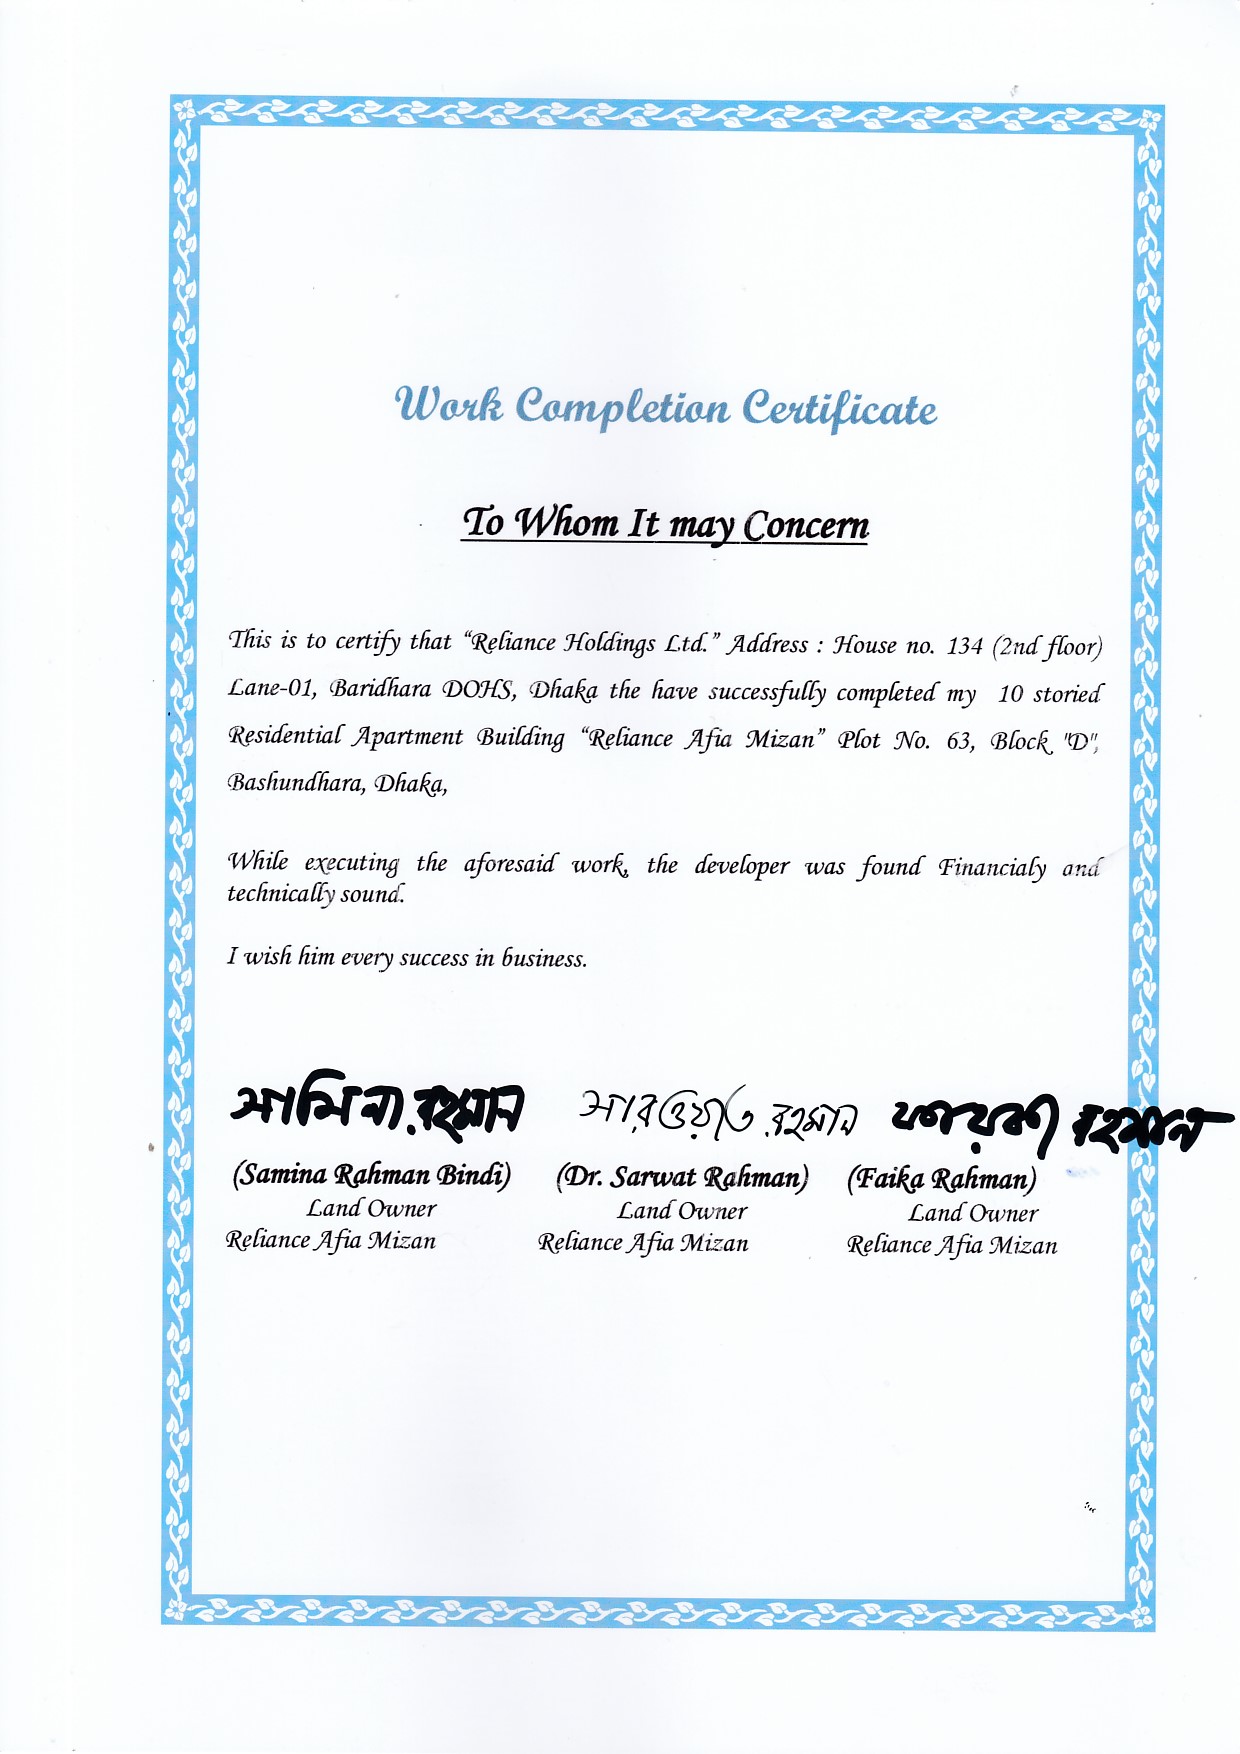 Work Completion Certificate
To Whom It may Concern
This is to certify that “Reliance Holdings Ltd.” Address : House no. 134 (2nd floor)
Lane-01, Baridhara DOHS, Dhaka the have successfully completed my 10 storied
Residential Apartment Building “Reliance Afia Mizan” Plot No. 63, Block "D",
Bashundhara, Dhaka,
While executing the aforesaid work, the developer was found Financialy and
technically sound.
I wish him every success in business.
সামিনা রহমান সারওয়াত রহমান ফায়কা রহমান
(Samina Rahman Bindi) (Dr. Sarwat Rahman) (Faika Rahman)
Land Owner Land Owner Land Owner
Reliance Afia Mizan Reliance Afia Mizan Reliance Afia Mizan